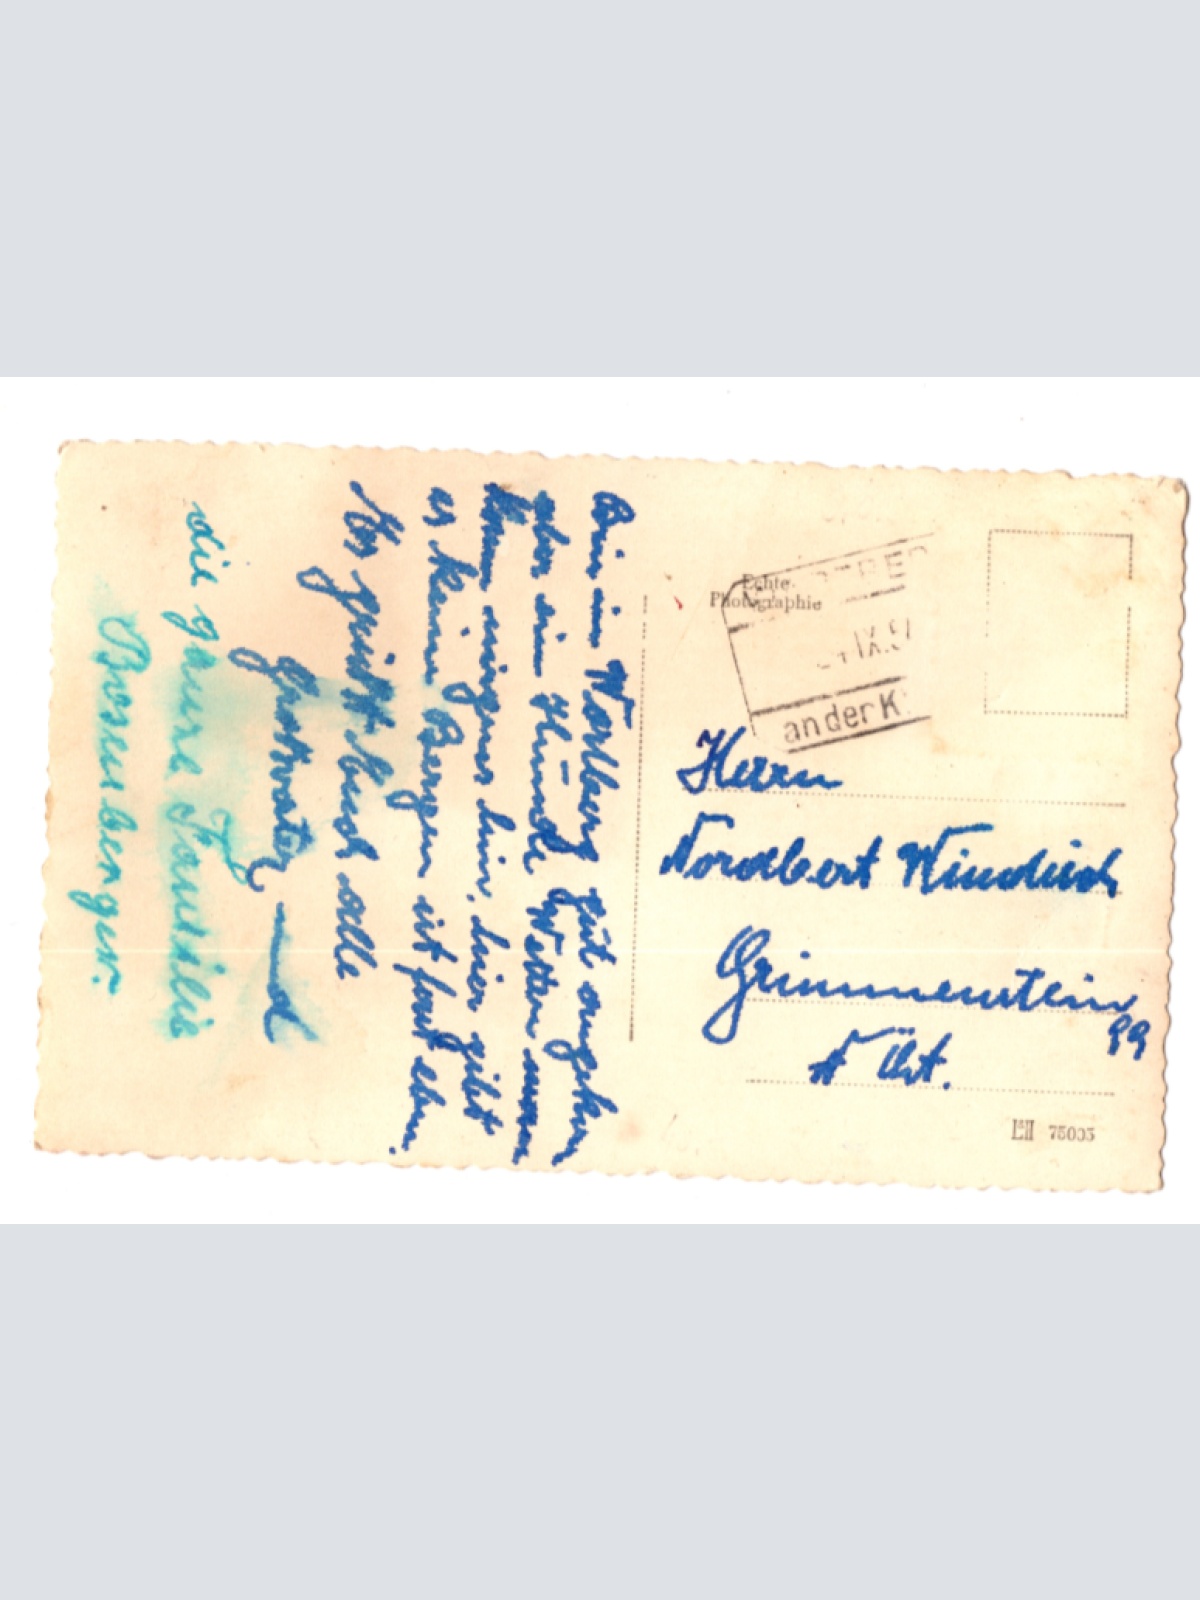 Bin in Warlberg gut angekom
aber ein Hunde Wetter man
kann nirgens hin, hier gibt
es keine Bergen ist fast eben.
Es grüßt Euch alle
Großvater und
die ganze Familie
Rosenberger.
Echte
Photographie
IX.5
an der K
Herrn
Nordbert Windisch
Grimmenstein
99
N Öst.
75005